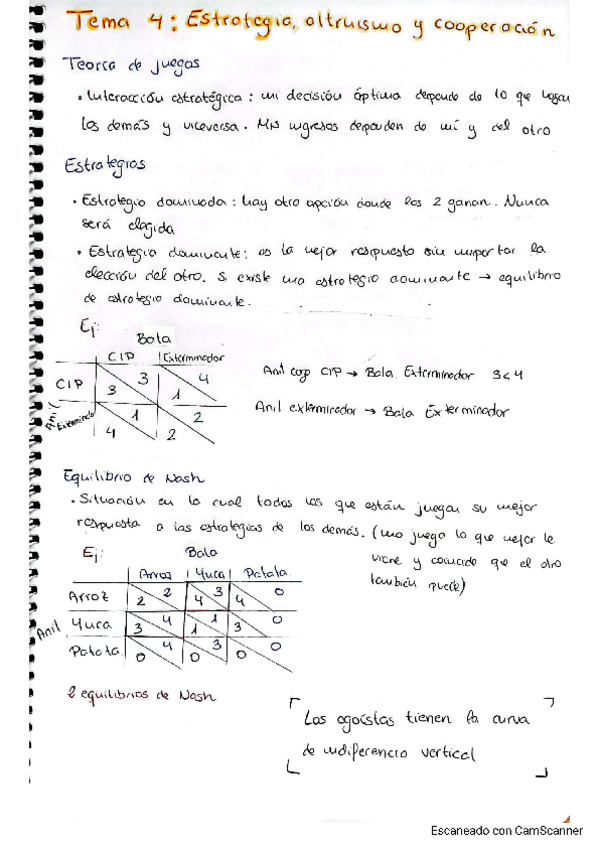 Tema 4: Estrategia, altruismo y cooperación
Teoría de juegos
• Interacción estratégica: mi decisión óptima depende de lo que hagan
los demás y viceversa. Mis ingresos dependen de mí y del otro
Estrategias
• Estrategia dominada: hay otra opción donde los 2 ganan. Nunca
será elegida
• Estrategia dominante: es la mejor respuesta sin importar la
elección del otro. Si existe una estrategia dominante → equilibrio
de estrategia dominante.
Ej:
Bala
CIP Exterminador
CIP 3 3 1 4
Anil Exterminador 4 1 2 2
Anil coge CIP → Bala Exterminador 3<4
Anil exterminador → Bala Exterminador
Equilibrio de Nash
• Situación en la cual todos los que están juegan su mejor
respuesta a las estrategias de los demás. (uno juega lo que mejor le
viene y coincide que el otro
también puede)
Ej: Bala
Arroz Yuca Patata
Arroz 2 2 4 3 4 0
Anil Yuca 3 4 1 1 3 0
Patata 0 4 0 3 0 0
2 equilibrios de Nash
Los egoístas tienen la curva
de indiferencia vertical
Escaneado con CamScanner